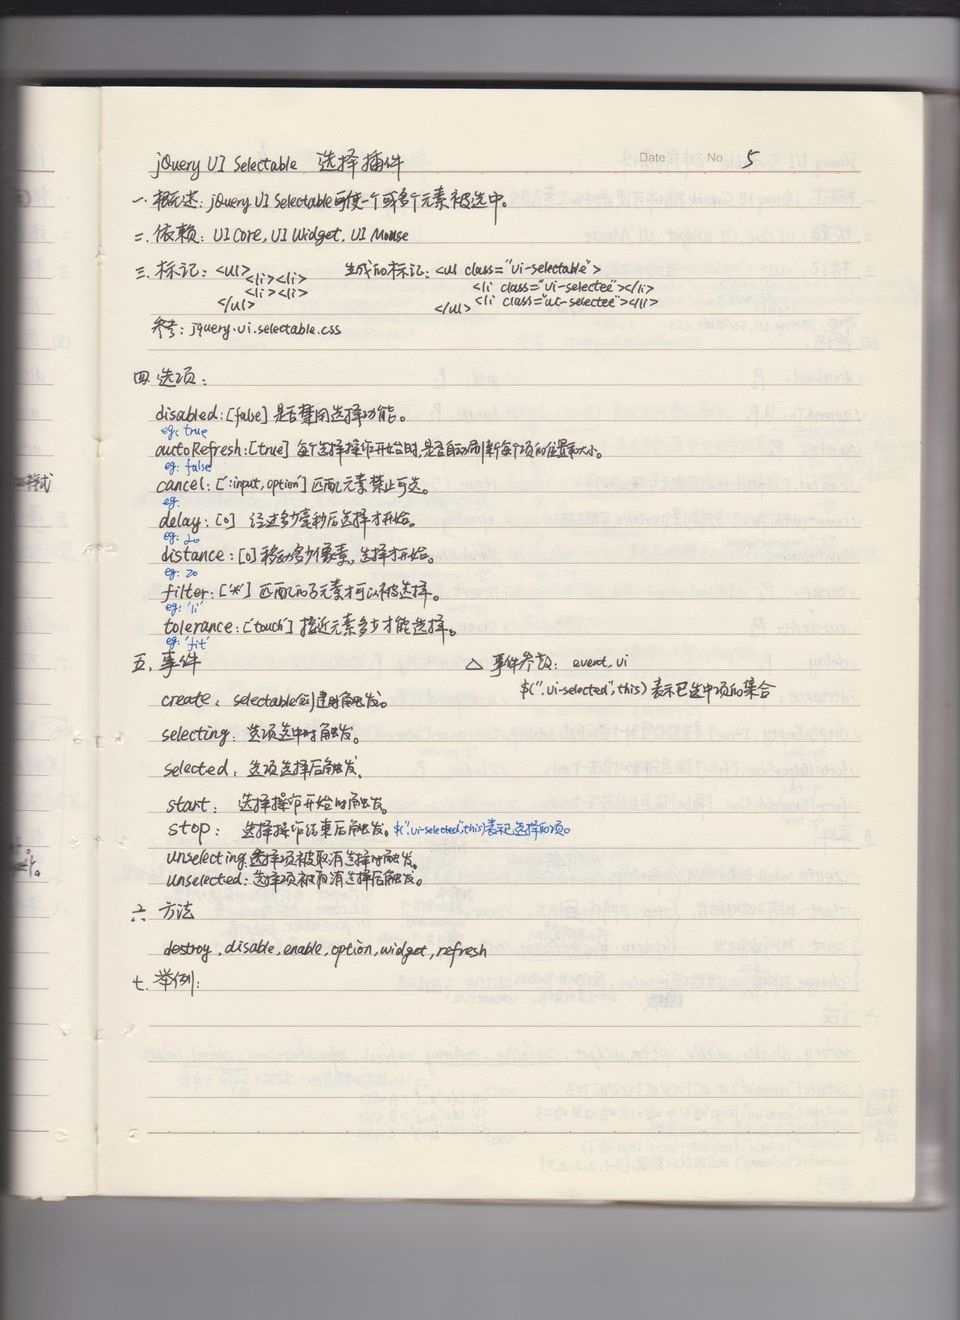 jQuery UI Selectable 选择插件
Date No 5
一. 概述: jQuery UI Selectable可使一个或多个元素被选中。
二. 依赖: UI Core, UI Widget, UI Mouse
三. 标记: <ul> 生成的标记: <ul class="ui-selectable">
<li><li> <li class="ui-selectee"></li>
<li><li> <li class="ui-selectee"></li>
</ul> </ul>
参考: jquery.ui.selectable.css
四. 选项:
disabled: [false] 是否禁用选择功能。
eg: true
autoRefresh: [true] 每个选择操作开始时,是否自动刷新每个项的位置和大小。
eg: false
cancel: [':input, option'] 匹配元素禁止可选。
eg:
delay: [0] 经过多少毫秒后选择才开始。
eg: 20
distance: [0] 移动多少像素, 选择才开始。
eg: 20
filter: ['*'] 匹配的子元素才可以被选择。
eg: 'li'
tolerance: ['touch'] 接近元素多少才能选择。
eg: 'fit'
五. 事件 △ 事件参数: event, ui
$(".ui-selected", this) 表示已选中项的集合
create: selectable创建时触发。
selecting: 选项选中时触发。
selected: 选项选择后触发.
start: 选择操作开始时触发。
stop: 选择操作结束后触发。$(".ui-selected", this)表示已选择的项。
unselecting: 选择项被取消选择时触发。
unselected: 选择项被取消选择后触发。
六. 方法
destroy, disable, enable, option, widget, refresh
七. 举例: